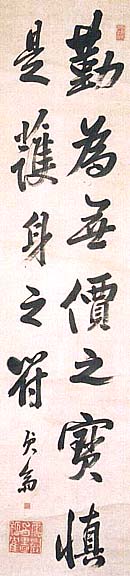 勤為無價之寶慎
是護身之符